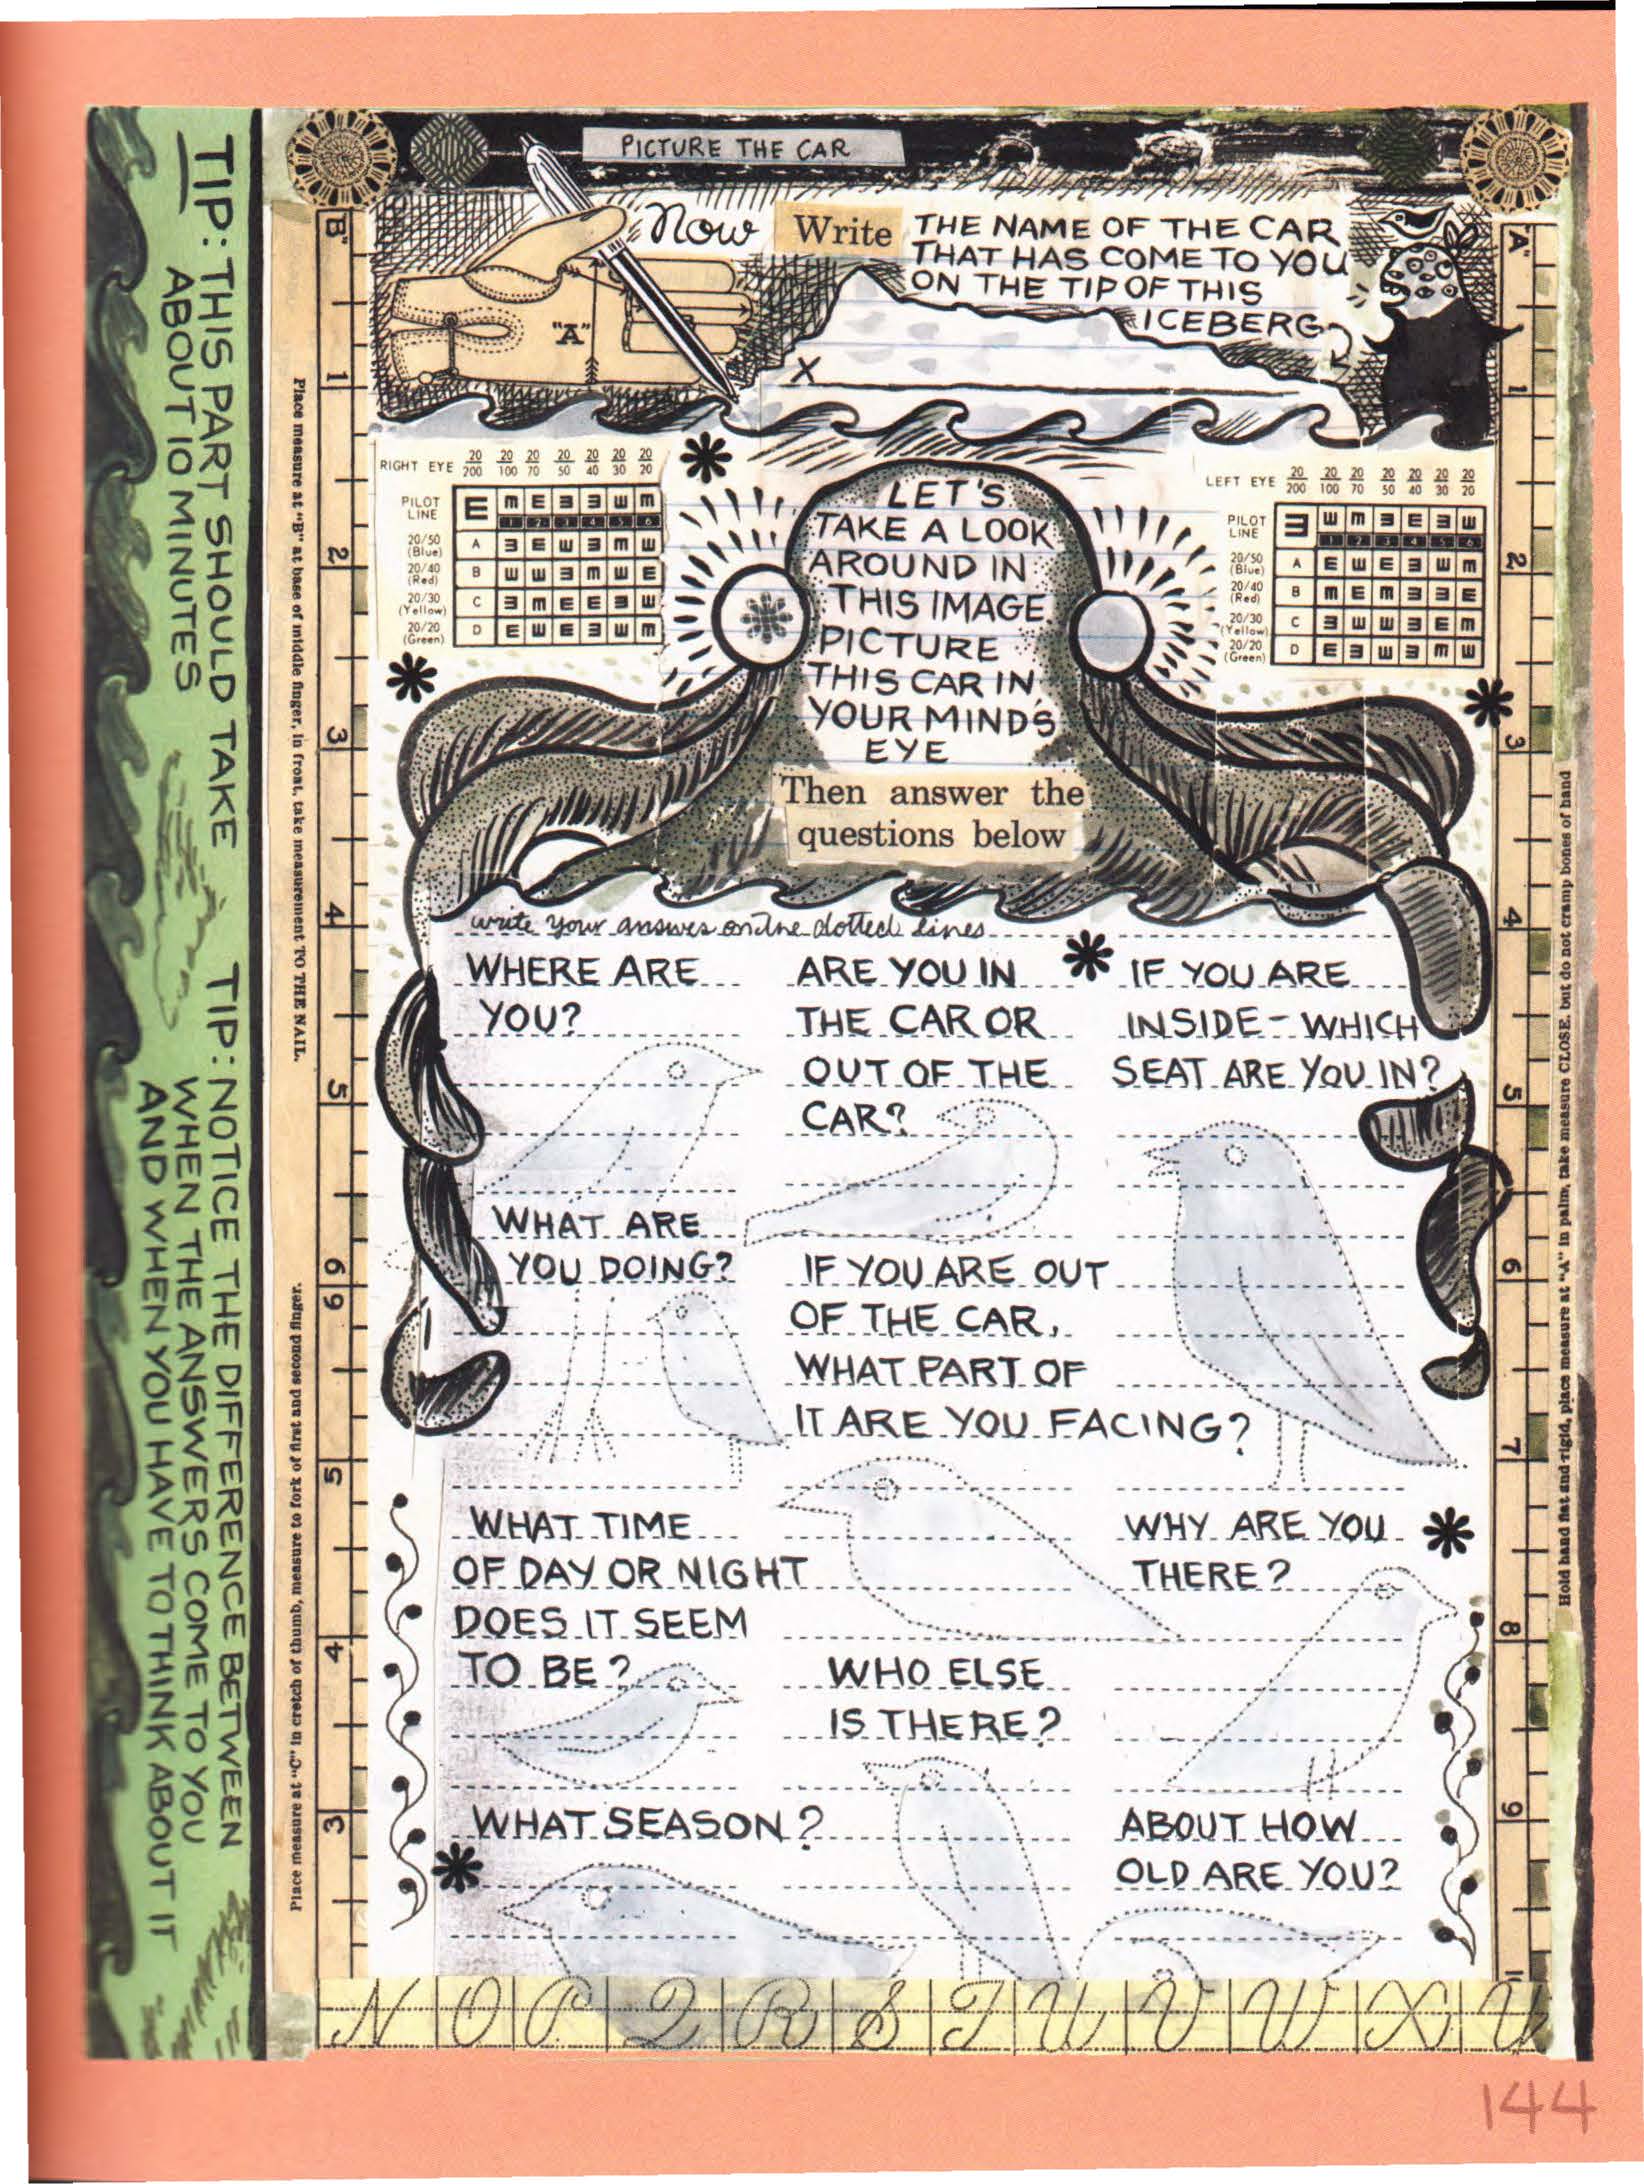 PICTURE THE CAR
Now Write THE NAME OF THE CAR
THAT HAS COME TO YOU
ON THE TIP OF THIS
ICEBERG
"A"
X
RIGHT EYE 20/200 20/100 20/70 20/50 20/40 20/30 20/20
PILOT LINE E m E 3 3 W m
1 2 3 4 5 6
20/50 (Blue) A 3 E W 3 m W
20/40 (Red) B W W 3 m W E
20/30 (Yellow) C 3 m E E 3 W
20/20 (Green) D E W E 3 W m
LEFT EYE 20/200 20/100 20/70 20/50 20/40 20/30 20/20
PILOT LINE 3 W m 3 E 3 W
1 2 3 4 5 6
20/50 (Blue) A E W E 3 W m
20/40 (Red) B m E m 3 3 E
20/30 (Yellow) C 3 W W 3 E m
20/20 (Green) D E 3 W 3 m W
LET'S
TAKE A LOOK
AROUND IN
THIS IMAGE
PICTURE
THIS CAR IN
YOUR MIND'S
EYE
Then answer the
questions below
write your answers on the dotted lines
WHERE ARE
YOU?
ARE YOU IN
THE CAR OR
OUT OF THE
CAR?
IF YOU ARE
INSIDE - WHICH
SEAT ARE YOU IN?
WHAT ARE
YOU DOING?
IF YOU ARE OUT
OF THE CAR,
WHAT PART OF
IT ARE YOU FACING?
WHAT TIME
OF DAY OR NIGHT
DOES IT SEEM
TO BE?
WHY ARE YOU
THERE?
WHO ELSE
IS THERE?
WHAT SEASON?
ABOUT HOW
OLD ARE YOU?
N O P Q R S T U V W X Y
TIP: THIS PART SHOULD TAKE
ABOUT 10 MINUTES
TIP: NOTICE THE DIFFERENCE BETWEEN
WHEN THE ANSWERS COME TO YOU
AND WHEN YOU HAVE TO THINK ABOUT IT
Place measure at "B" at base of middle finger, in front, take measurement TO THE NAIL.
Place measure at "C" in crotch of thumb, measure to fork of first and second finger.
"B"
1
2
3
4
5
6
6
5
4
3
"A"
1
2
3
4
5
6
7
8
9
Hold hand flat and rigid, place measure at "A" in palm, take measure CLOSE, but do not cramp bones of hand
144